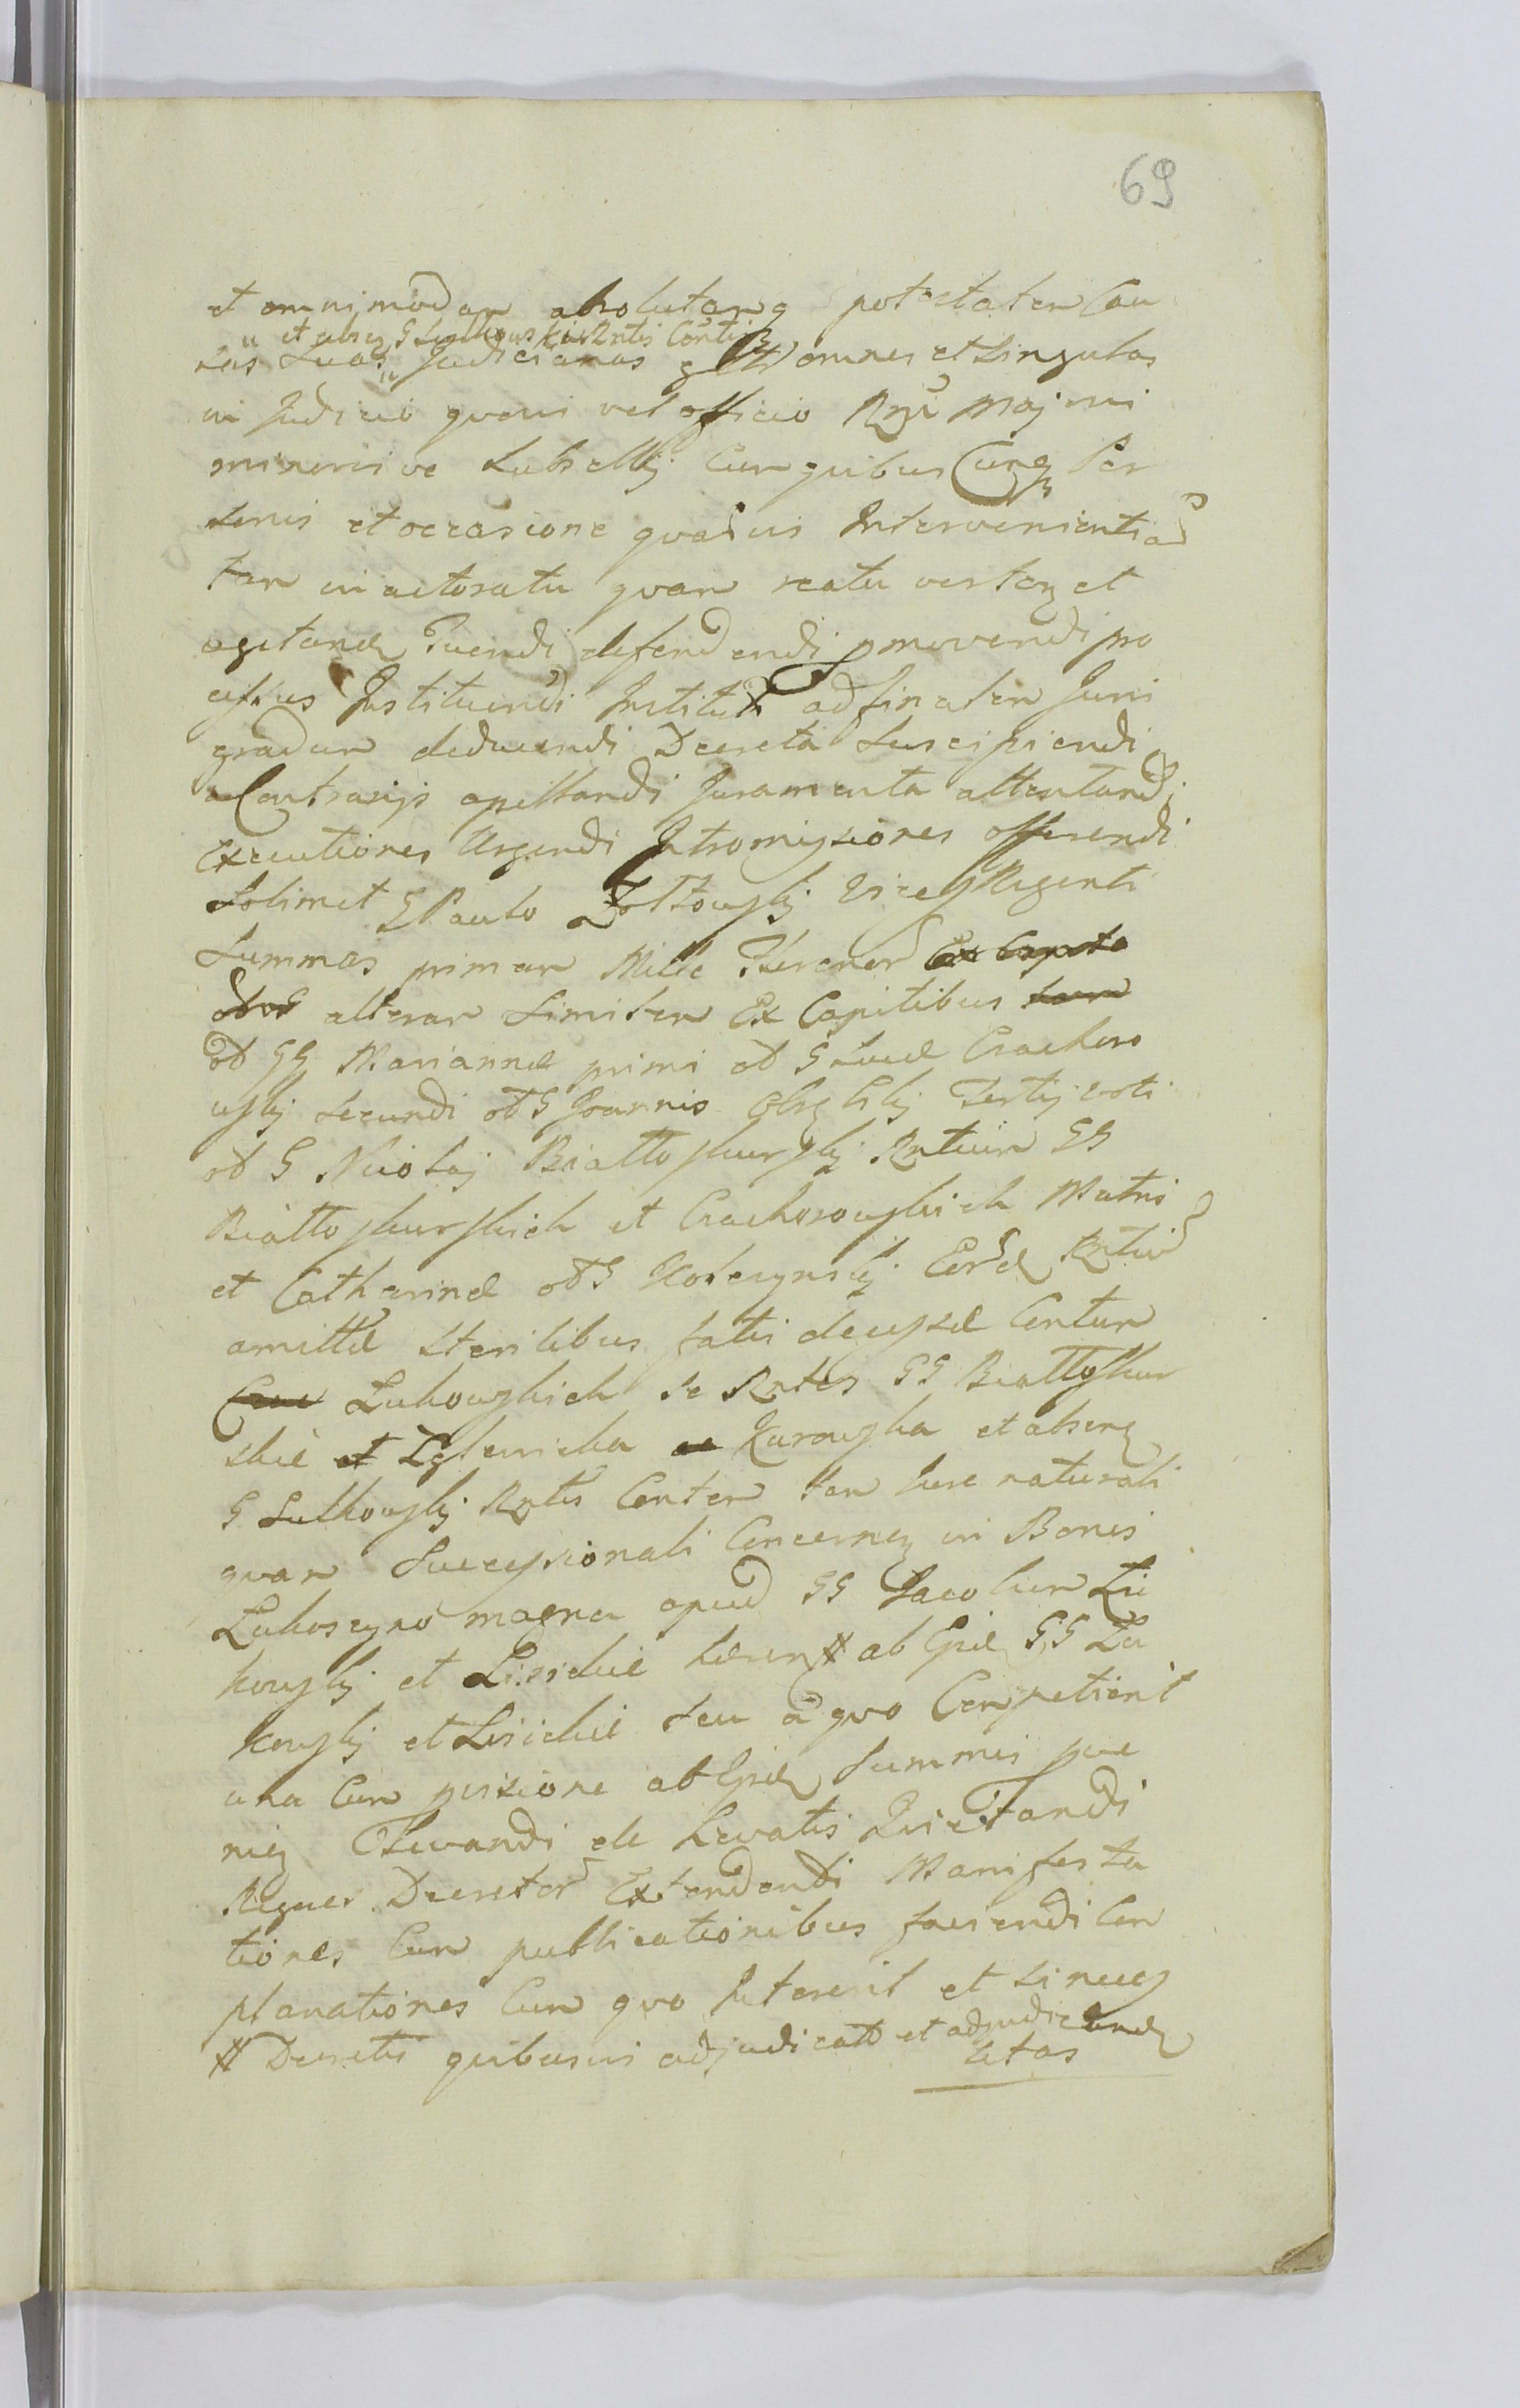 69
et omnimodam absolutamq potestatem Cau
et absq G Lutkowski Rntis Contis
sas suas Judiciarias gntr omnes et singulas
in Judicio quovi vel officio Rgni Majori
minorive Subsellij Cum quibus Cunq Per
sonis et occasione quavis Intervenientia
tam in actoratu quam reatu verten et
agitand Tuendi defendendi pmovendi pro
cessus Instituendi Instituti ad finalem Juris
gradum deducendi Decreta Suscipiendi
a Contrarijs apellandi Juramenta attentandi
Executiones Urgendi Intromissiones offerendi
Solimet G Paulo Zoltowskij Vice Regenti
Summas primam Mille Florenor Ex Capite
alteram Similem Ex Capitibus
od GG Marianne primi od G Luce Crachoro
wskij secundi od G Joannis Tertij voti
od G Nicolaj Bialloskurskij Rntium GG
Bialloskurskich et Crachorowskich Matris
et Catharine od G Kotczynskij Rntiu
amitte sterilibus fatis decesse Contun
Lukowskich se Rntes GG Bialloskur
skie et Kurowska et absen
G Lutkowskij Rntis Conten tam Jure naturali
quam Successionali Concernen in Bonis
Lukoszyno magna apud GG Jacobum Lu
kowskij et Lisickie heren # ab Ipsis GG Lu
kowskij et Lisickie seu a quo Competierit
una Cum provisione ab Ipsis Summis
Elevandi de Levatis Quietandi
Rigores Decretor Extendendi Manifesta
tiones Cum publicationibus faciendi Com
planationes Cum quo Intererit et
# Decretis quibusvis adjudicato et adjudicand
litas